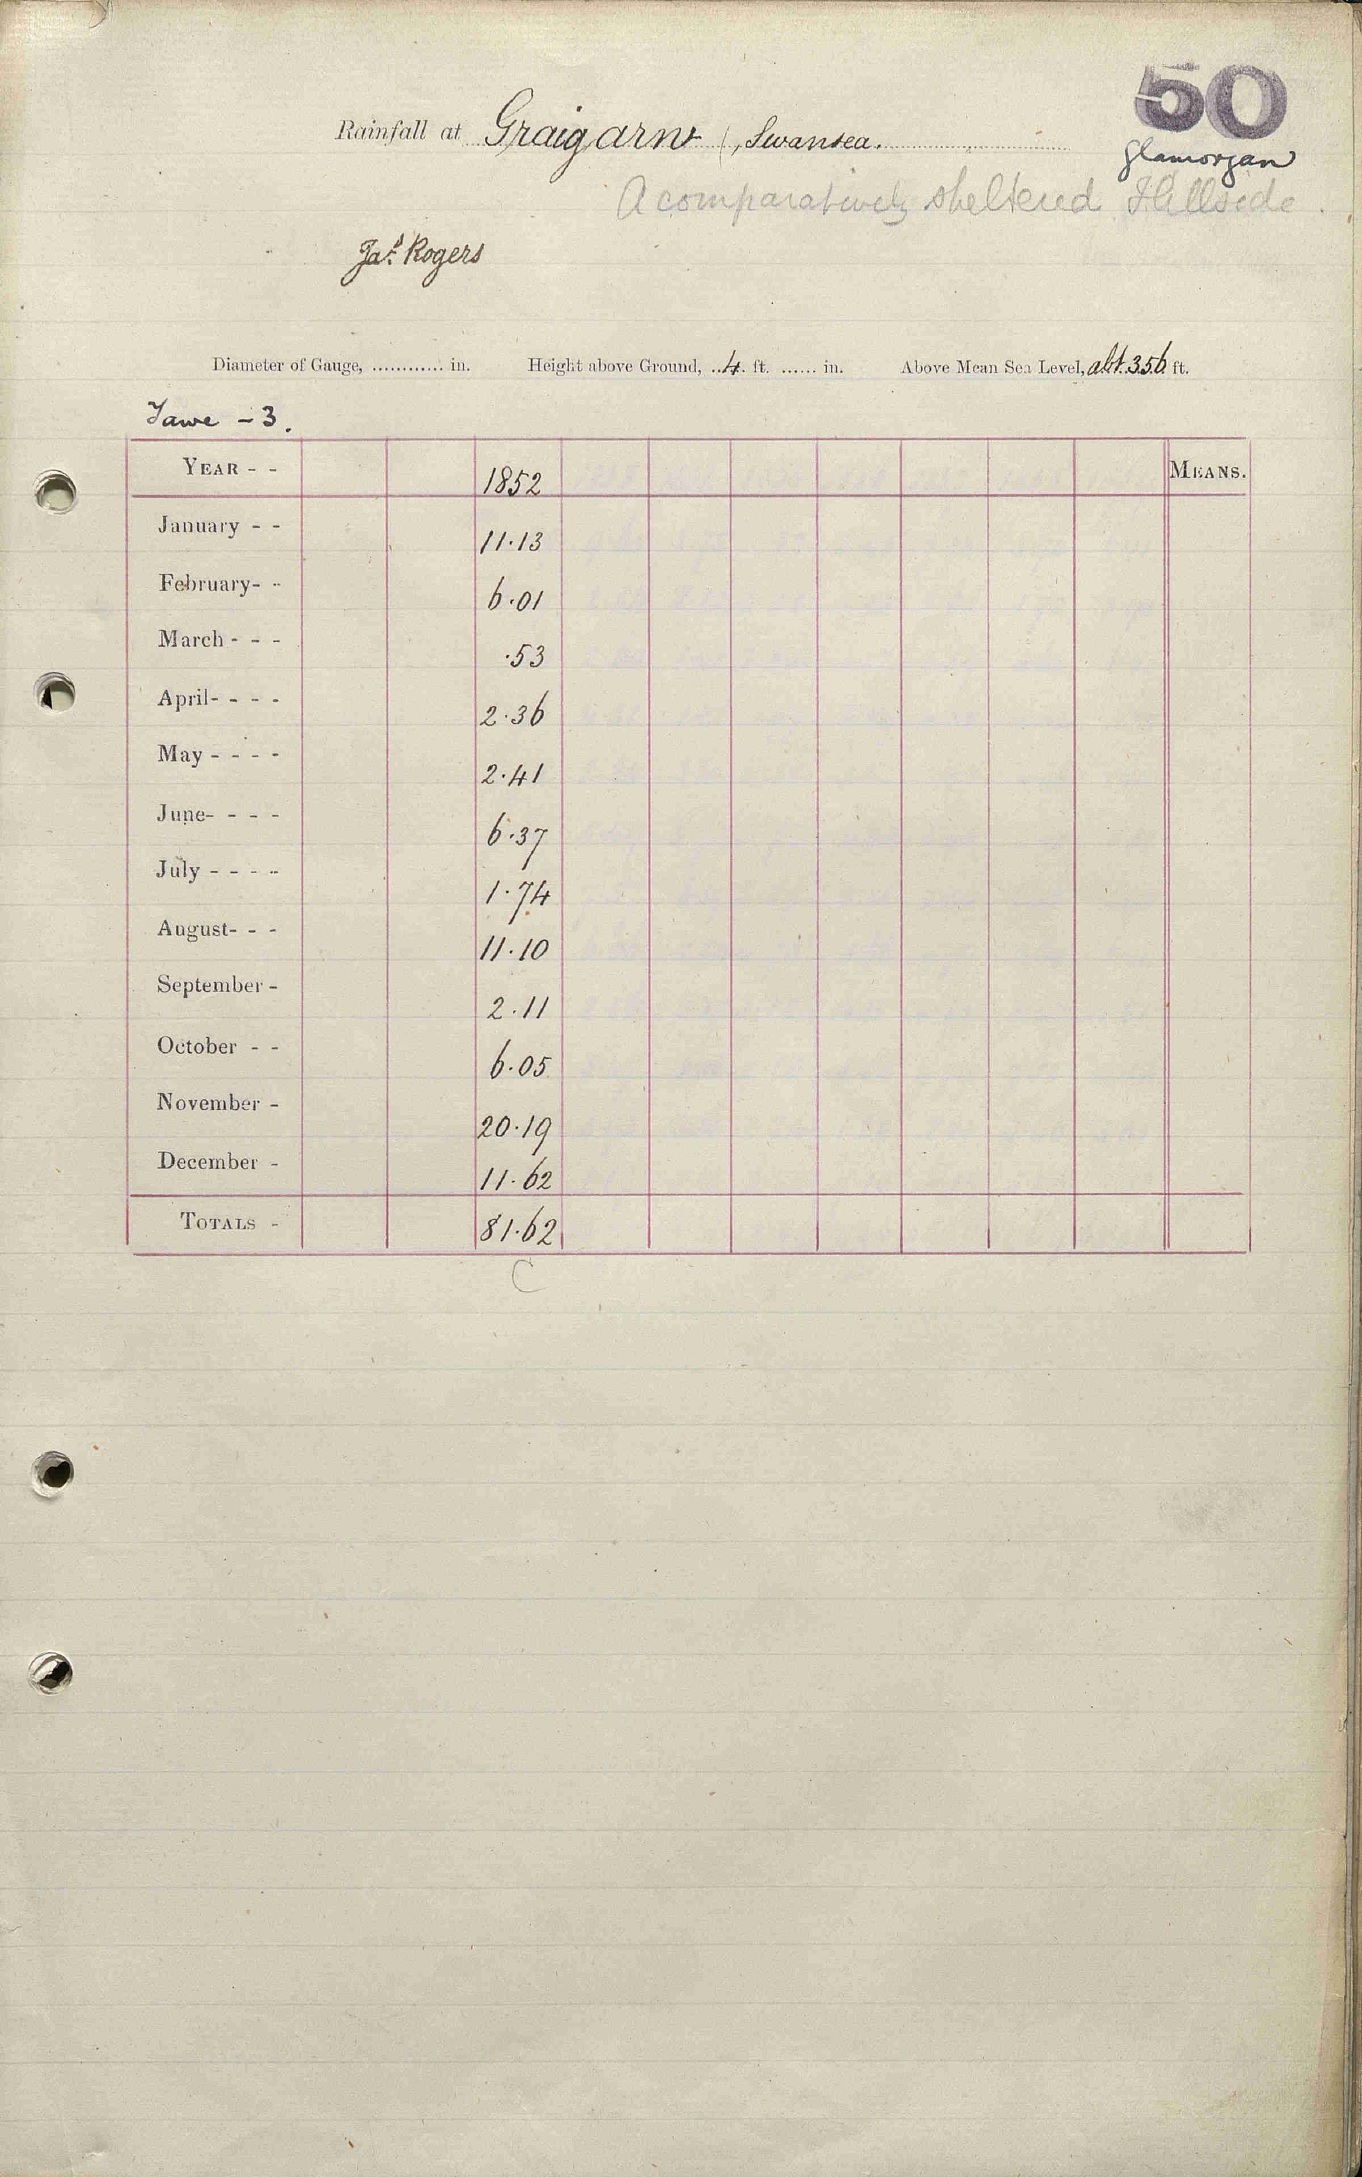 50
Rainfall at Graigarw (, Swansea.
Glamorgan
A comparatively sheltered Hillside.
Jas. Rogers
Diameter of Gauge, ............ in. Height above Ground, ..4.. ft. ...... in. Above Mean Sea Level, alt. 356 ft.
Tawe - 3.
YEAR - - 1852 MEANS.
January - - 11.13
February- - 6.01
March - - - .53
April- - - - 2.36
May - - - - 2.41
June- - - - 6.37
July - - - - 1.74
August- - - 11.10
September - 2.11
October - - 6.05
November - 20.19
December - 11.62
TOTALS - 81.62
C